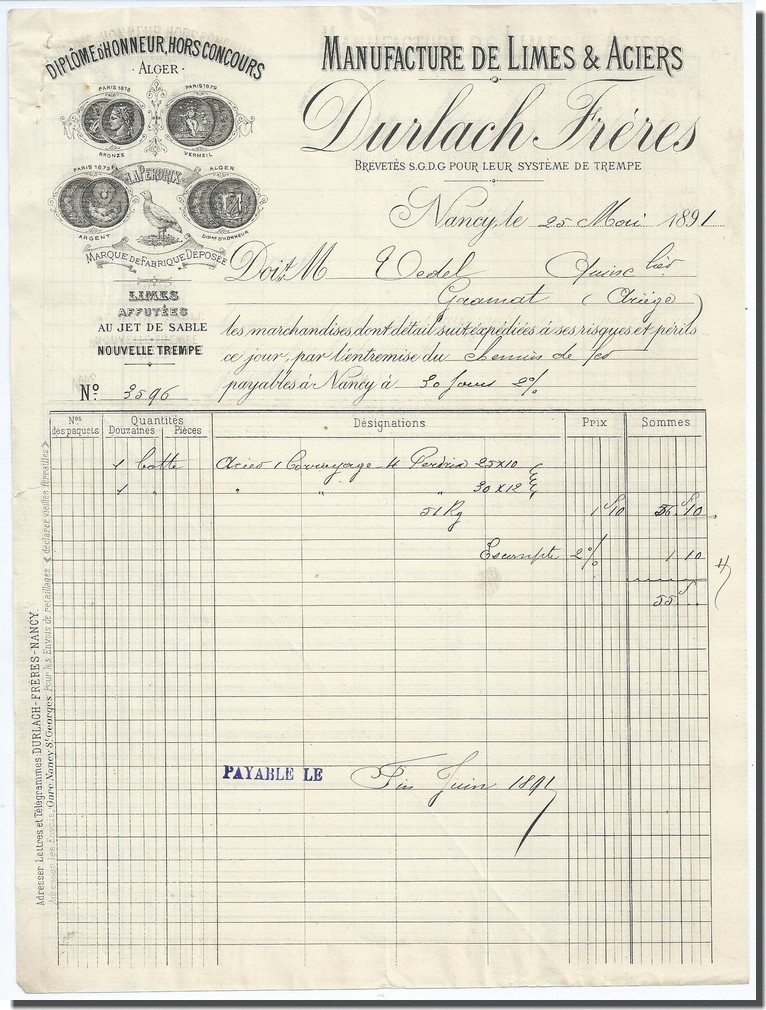 DIPLÔME D'HONNEUR, HORS CONCOURS
ALGER
PARIS 1878
PARIS 1879
BRONZE
VERMEIL
PARIS 1879
ALGER
LA PERDRIX
ARGENT
DIPME D'HONNEUR
MARQUE DE FABRIQUE DÉPOSÉE
LIMES
AFFUTÉES
AU JET DE SABLE
NOUVELLE TREMPE
No. 3596
MANUFACTURE DE LIMES & ACIERS
Durlach Frères
BREVETÉS S.G.D.G POUR LEUR SYSTÈME DE TREMPE
Nancy, le 25 Mai 1891
Doit M Vedel Quinc lier
Gramat (Ariège)
les marchandises dont détail suit expédiées à ses risques et périls
ce jour, par l'entremise du chemin de fer
payables à Nancy à 30 jours 2%
Nos des paquets
Quantités
Douzaines Pièces
Désignations
Prix
Sommes
1 botte Acier Corroyage H Perdrix 25 x 10
1 " " " " 30 x 12
51 Kg 1 f 10 56 f 10
Escompte 2% 1 10
55
PAYABLE LE Fin Juin 1891
Adresser Lettres et Télégrammes DURLACH-FRÈRES-NANCY.
Adresser les Envois, Gare Nancy St Georges Pour les Envois de retaillages < déclarer vieilles ferrailles >